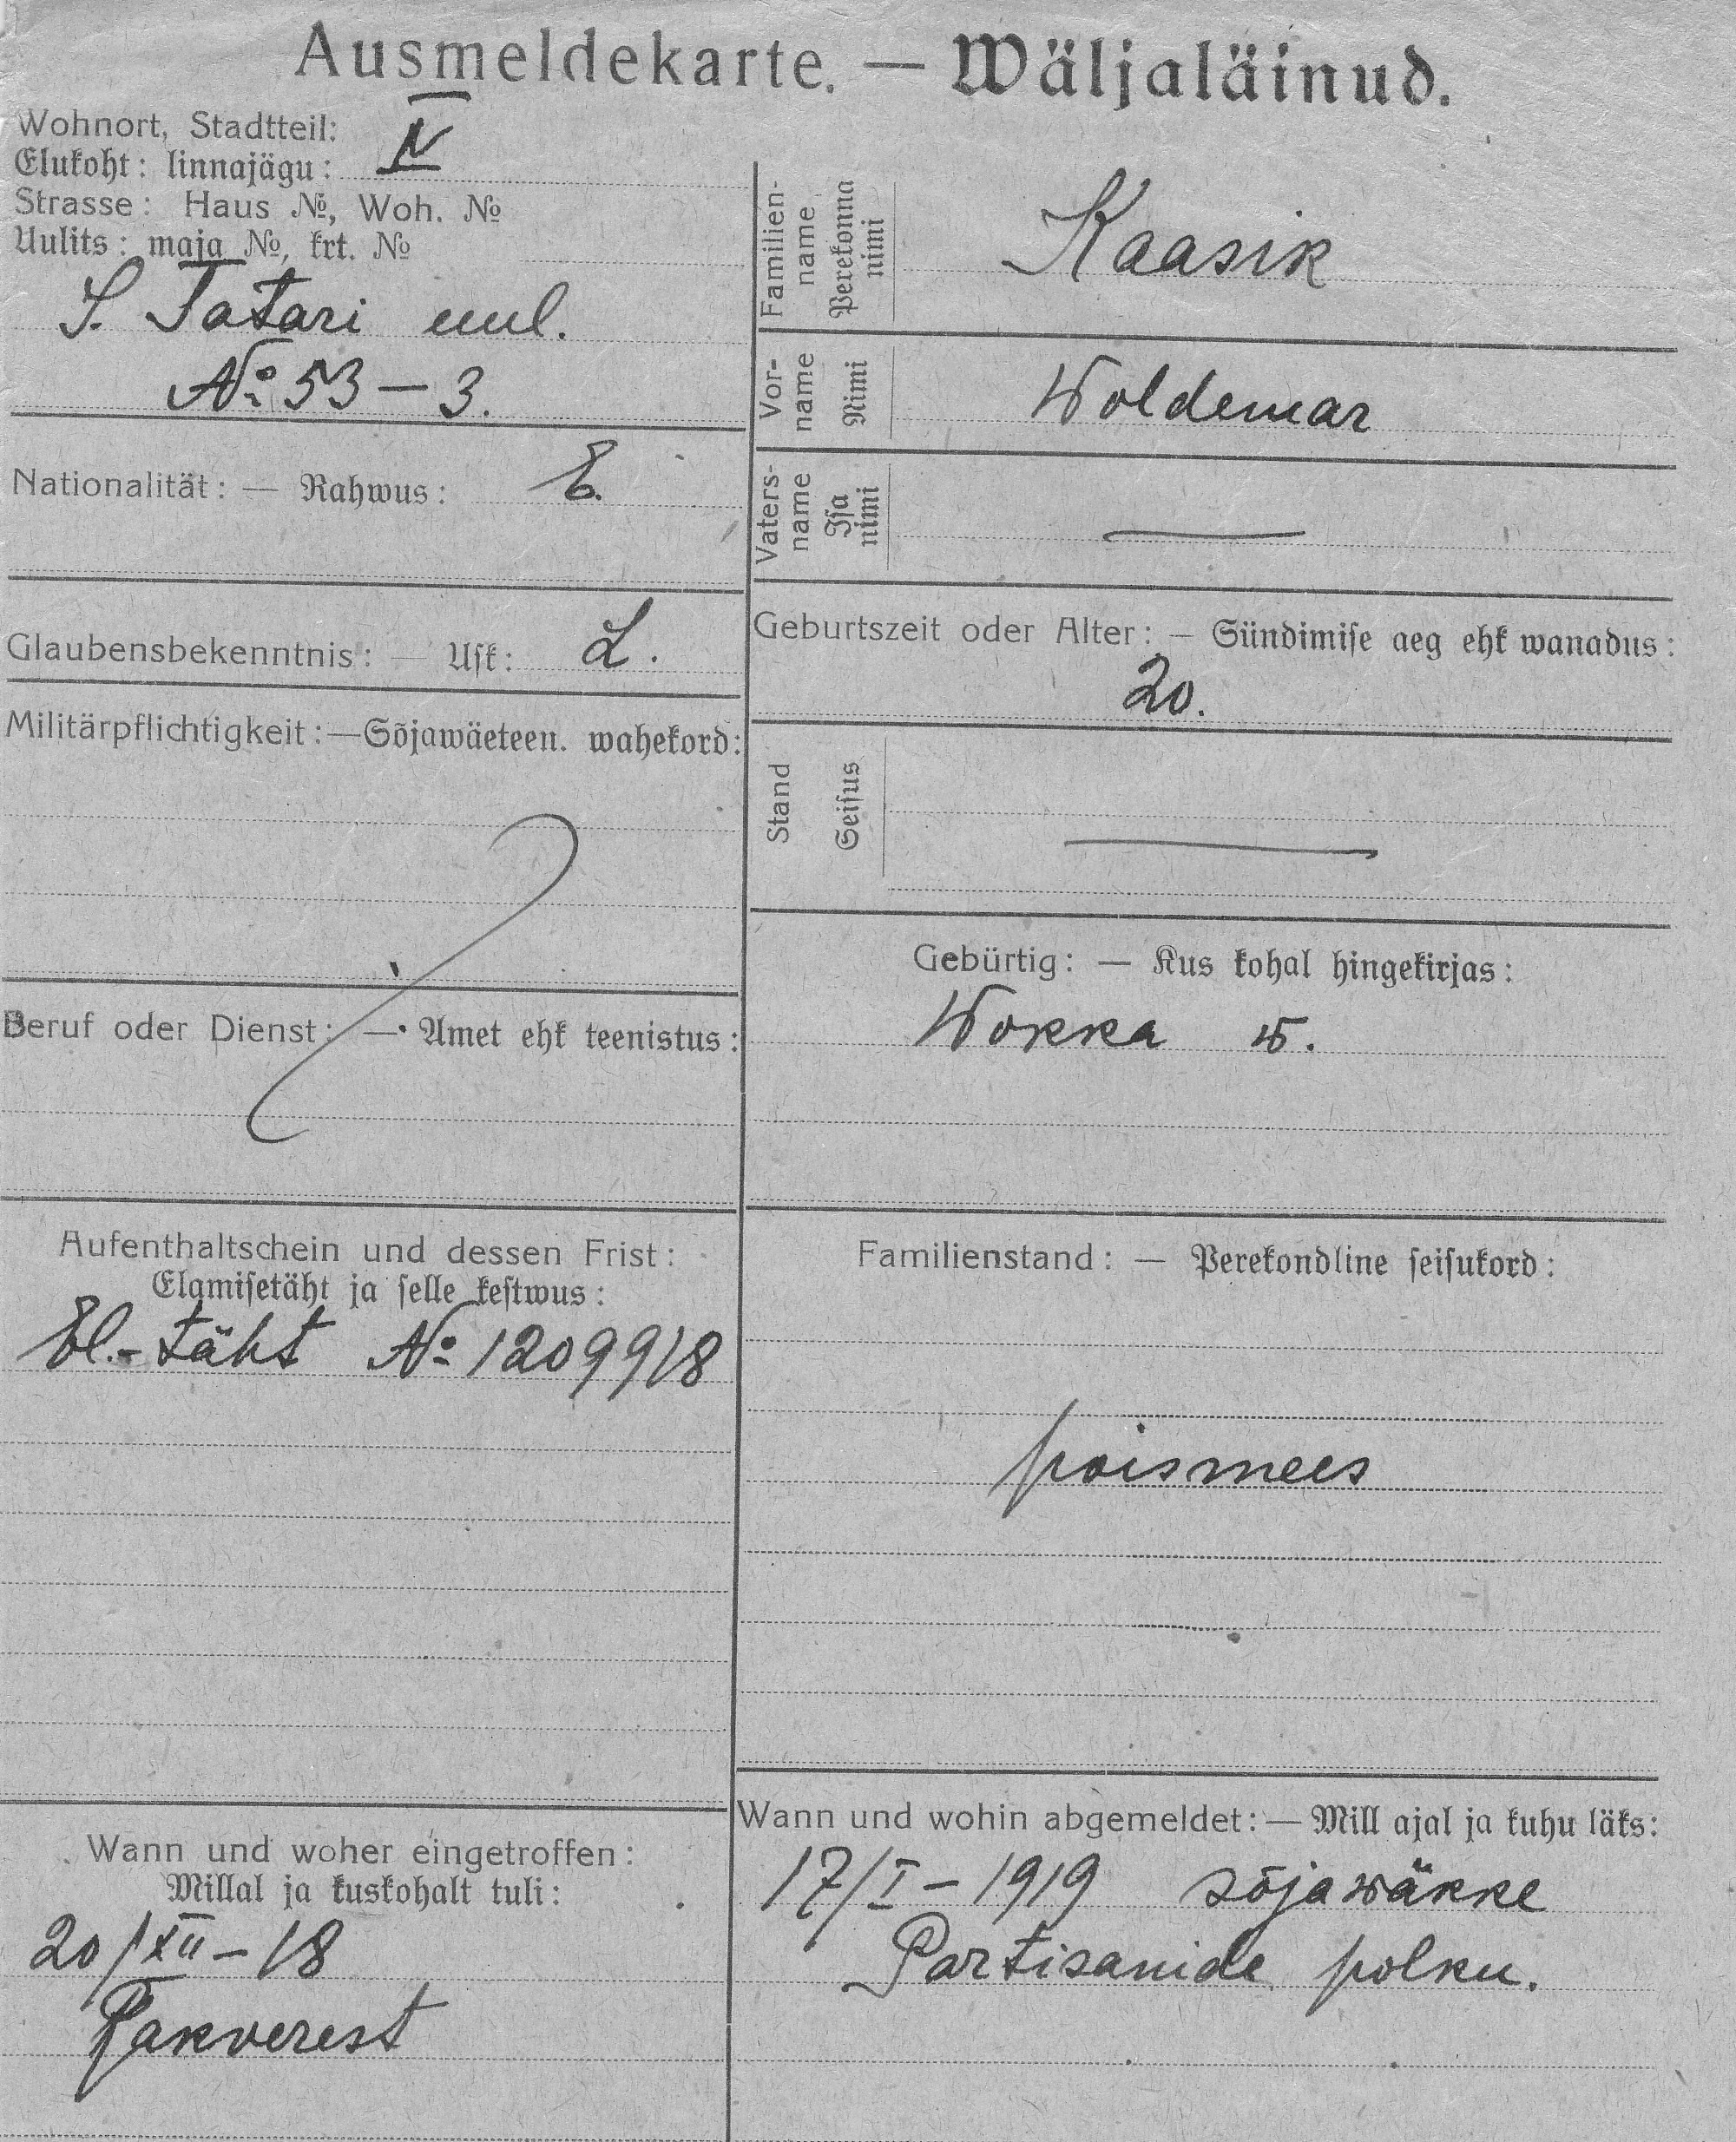 Ausmeldekarte. — Wäljaläinud.
Wohnort, Stadtteil:
Elukoht: linnajägu: IV
Strasse: Haus №, Woh. №
Uulits: maja №, krt. №
S. Tatari uul.
№ 53 – 3.
Nationalität: — Rahwus: E.
Glaubensbekenntnis: — Usk: L.
Militärpflichtigkeit: — Sõjawäeteen. wahekord:
Beruf oder Dienst: — Amet ehk teenistus:
Aufenthaltschein und dessen Frist:
Elamisetäht ja selle kestwus:
El.-täht № 12099/8
Wann und woher eingetroffen:
Millal ja kuskohalt tuli:
20/XII – 18
Rakverest
Familien-
name
Perekonna
nimi
Kaasik
Vor-
name
Nimi
Woldemar
Vaters-
name
Isa
nimi
—
Geburtszeit oder Alter: — Sündimise aeg ehk wanadus:
20.
Stand
Seisus
—
Gebürtig: — Kus kohal hingekirjas:
Wokka w.
Familienstand: — Perekondline seisukord:
poismees
Wann und wohin abgemeldet: — Mill ajal ja kuhu läks:
17/I – 1919 sõjawäkke
Partisanide polku.